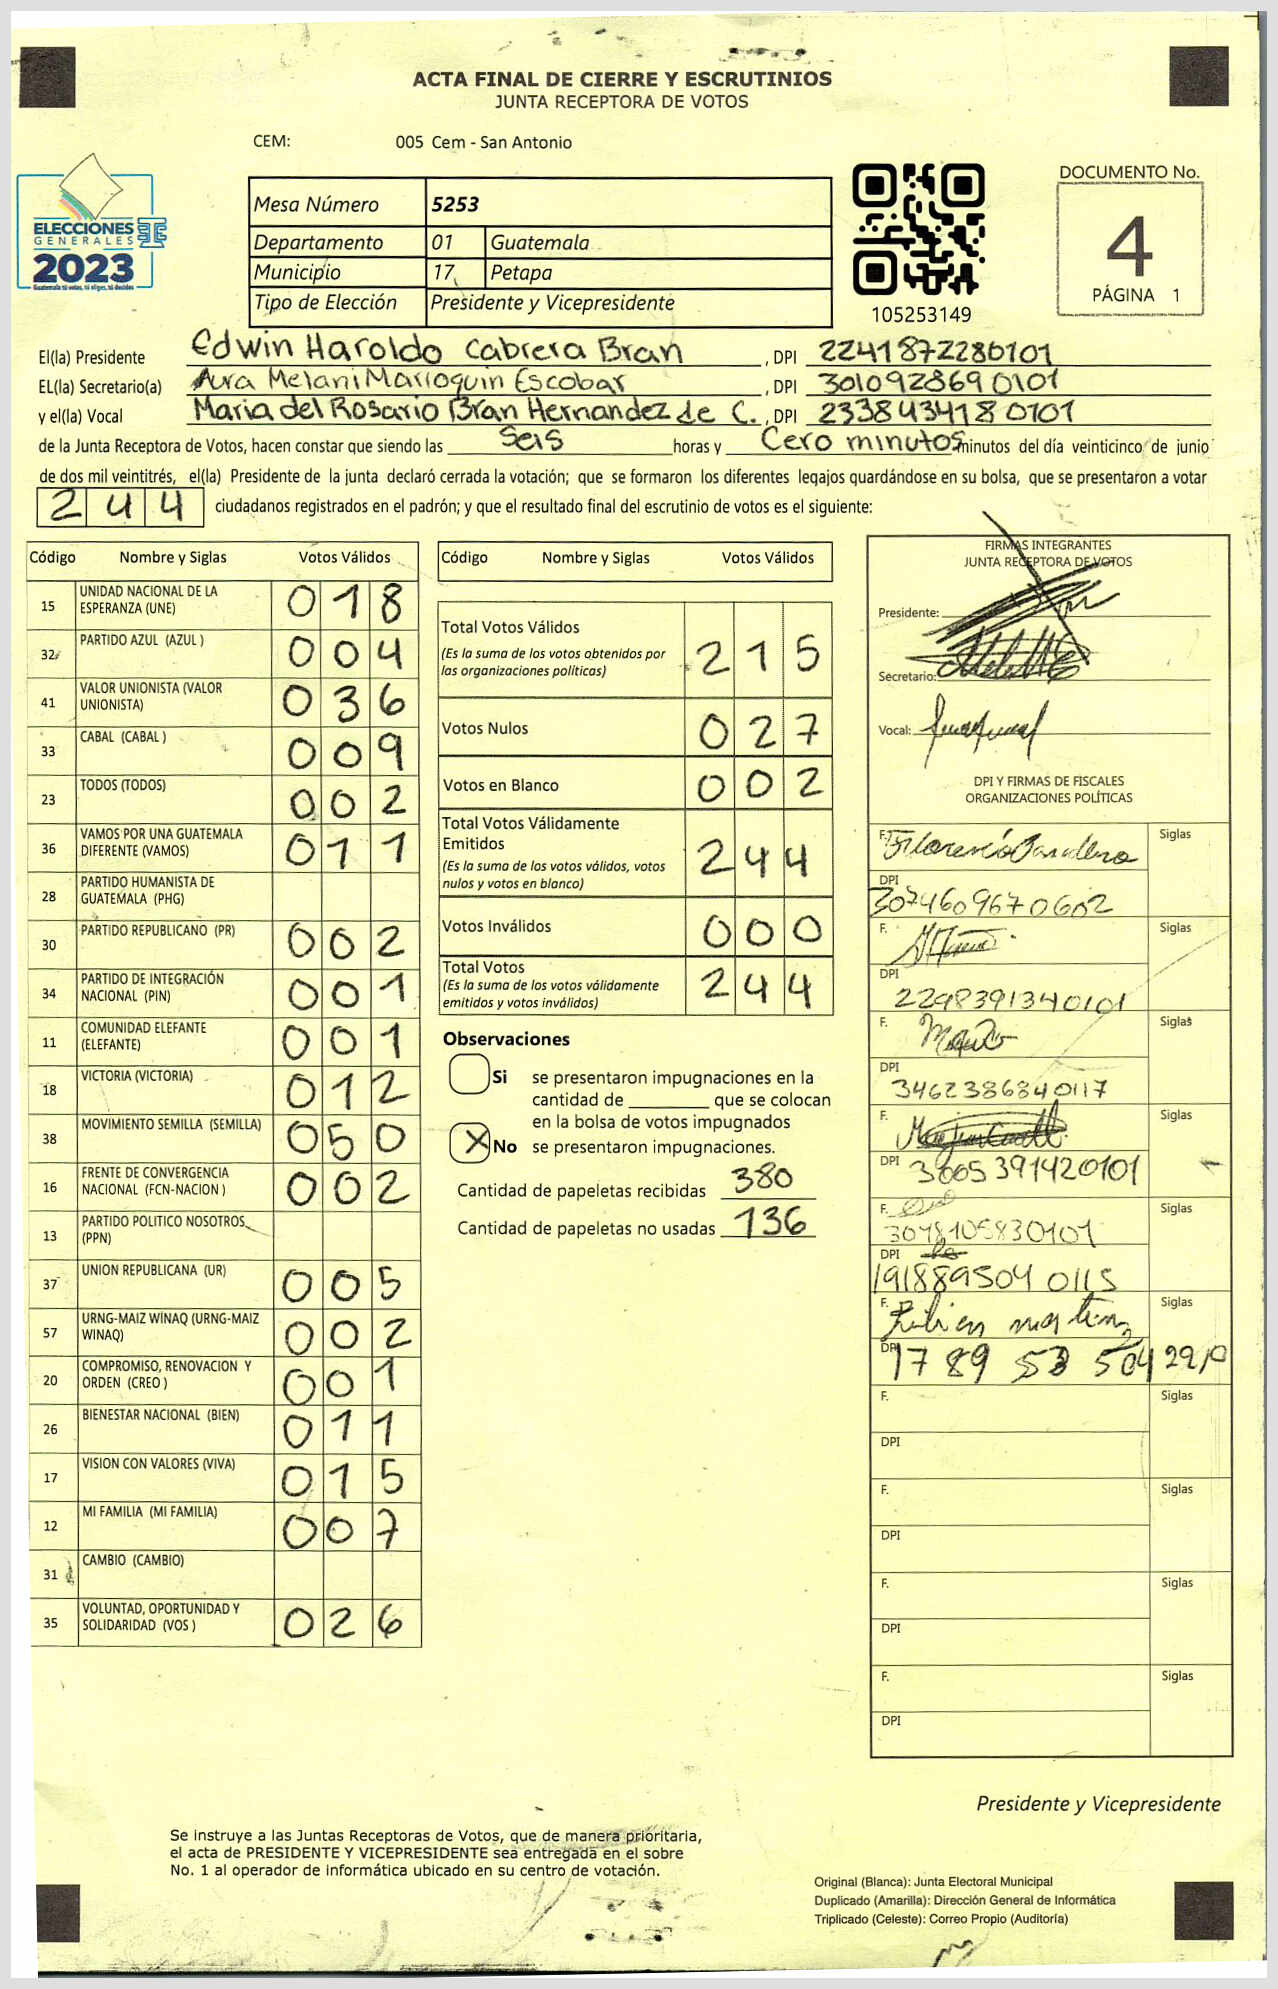 ACTA FINAL DE CIERRE Y ESCRUTINIOS
JUNTA RECEPTORA DE VOTOS
CEM: 005 Cem - San Antonio
ELECCIONES
GENERALES
2023
Guatemala tú votas, tú eliges, tú decides
Mesa Número 5253
Departamento 01 Guatemala
Municipio 17 Petapa
Tipo de Elección Presidente y Vicepresidente
105253149
DOCUMENTO No.
4
PÁGINA 1
El(la) Presidente Edwin Haroldo Cabrera Bran, DPI 2241872280101
EL(la) Secretario(a) Aura Melani Marroquin Escobar, DPI 3010928690101
y el(la) Vocal Maria del Rosario Bran Hernandez de C., DPI 2338434180101
de la Junta Receptora de Votos, hacen constar que siendo las Seis horas y Cero minutos minutos del día veinticinco de junio
de dos mil veintitrés, el(la) Presidente de la junta declaró cerrada la votación; que se formaron los diferentes legajos quardándose en su bolsa, que se presentaron a votar
244 ciudadanos registrados en el padrón; y que el resultado final del escrutinio de votos es el siguiente:
Código Nombre y Siglas Votos Válidos
15 UNIDAD NACIONAL DE LA ESPERANZA (UNE) 018
32 PARTIDO AZUL (AZUL ) 004
41 VALOR UNIONISTA (VALOR UNIONISTA) 036
33 CABAL (CABAL ) 009
23 TODOS (TODOS) 002
36 VAMOS POR UNA GUATEMALA DIFERENTE (VAMOS) 011
28 PARTIDO HUMANISTA DE GUATEMALA (PHG)
30 PARTIDO REPUBLICANO (PR) 002
34 PARTIDO DE INTEGRACIÓN NACIONAL (PIN) 001
11 COMUNIDAD ELEFANTE (ELEFANTE) 001
18 VICTORIA (VICTORIA) 012
38 MOVIMIENTO SEMILLA (SEMILLA) 050
16 FRENTE DE CONVERGENCIA NACIONAL (FCN-NACION ) 002
13 PARTIDO POLITICO NOSOTROS (PPN)
37 UNION REPUBLICANA (UR) 005
57 URNG-MAIZ WINAQ (URNG-MAIZ WINAQ) 002
20 COMPROMISO, RENOVACION Y ORDEN (CREO ) 001
26 BIENESTAR NACIONAL (BIEN) 011
17 VISION CON VALORES (VIVA) 015
12 MI FAMILIA (MI FAMILIA) 007
31 CAMBIO (CAMBIO)
35 VOLUNTAD, OPORTUNIDAD Y SOLIDARIDAD (VOS ) 026
Código Nombre y Siglas Votos Válidos
Total Votos Válidos 215
(Es la suma de los votos obtenidos por
las organizaciones politicas)
Votos Nulos 027
Votos en Blanco 002
Total Votos Válidamente
Emitidos 244
(Es la suma de los votos válidos, votos
nulos y votos en blanco)
Votos Inválidos 000
Total Votos 244
(Es la suma de los votos válidamente
emitidos y votos inválidos)
Observaciones
Si se presentaron impugnaciones en la
cantidad de ________ que se colocan
en la bolsa de votos impugnados
X No se presentaron impugnaciones.
Cantidad de papeletas recibidas 380
Cantidad de papeletas no usadas 136
FIRMAS INTEGRANTES
JUNTA RECEPTORA DE VOTOS
Presidente:
Secretario:
Vocal:
DPI Y FIRMAS DE FISCALES
ORGANIZACIONES POLÍTICAS
F. Siglas
DPI
3074609670602
F. Siglas
DPI
2298391340101
F. Siglas
DPI
3462386840117
F. Siglas
DPI 3005391420101
F. Siglas
3048105830101
DPI
1918895040115
F. Siglas
DPI
F. Siglas
DPI
F. Siglas
DPI
F. Siglas
DPI
F. Siglas
DPI
Presidente y Vicepresidente
Se instruye a las Juntas Receptoras de Votos, que de manera prioritaria,
el acta de PRESIDENTE Y VICEPRESIDENTE sea entregada en el sobre
No. 1 al operador de informática ubicado en su centro de votación.
Original (Blanca): Junta Electoral Municipal
Duplicado (Amarilla): Dirección General de Informática
Triplicado (Celeste): Correo Propio (Auditoría)